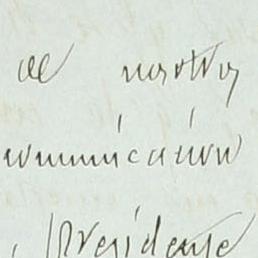 de nostra
comunicación
Presidente